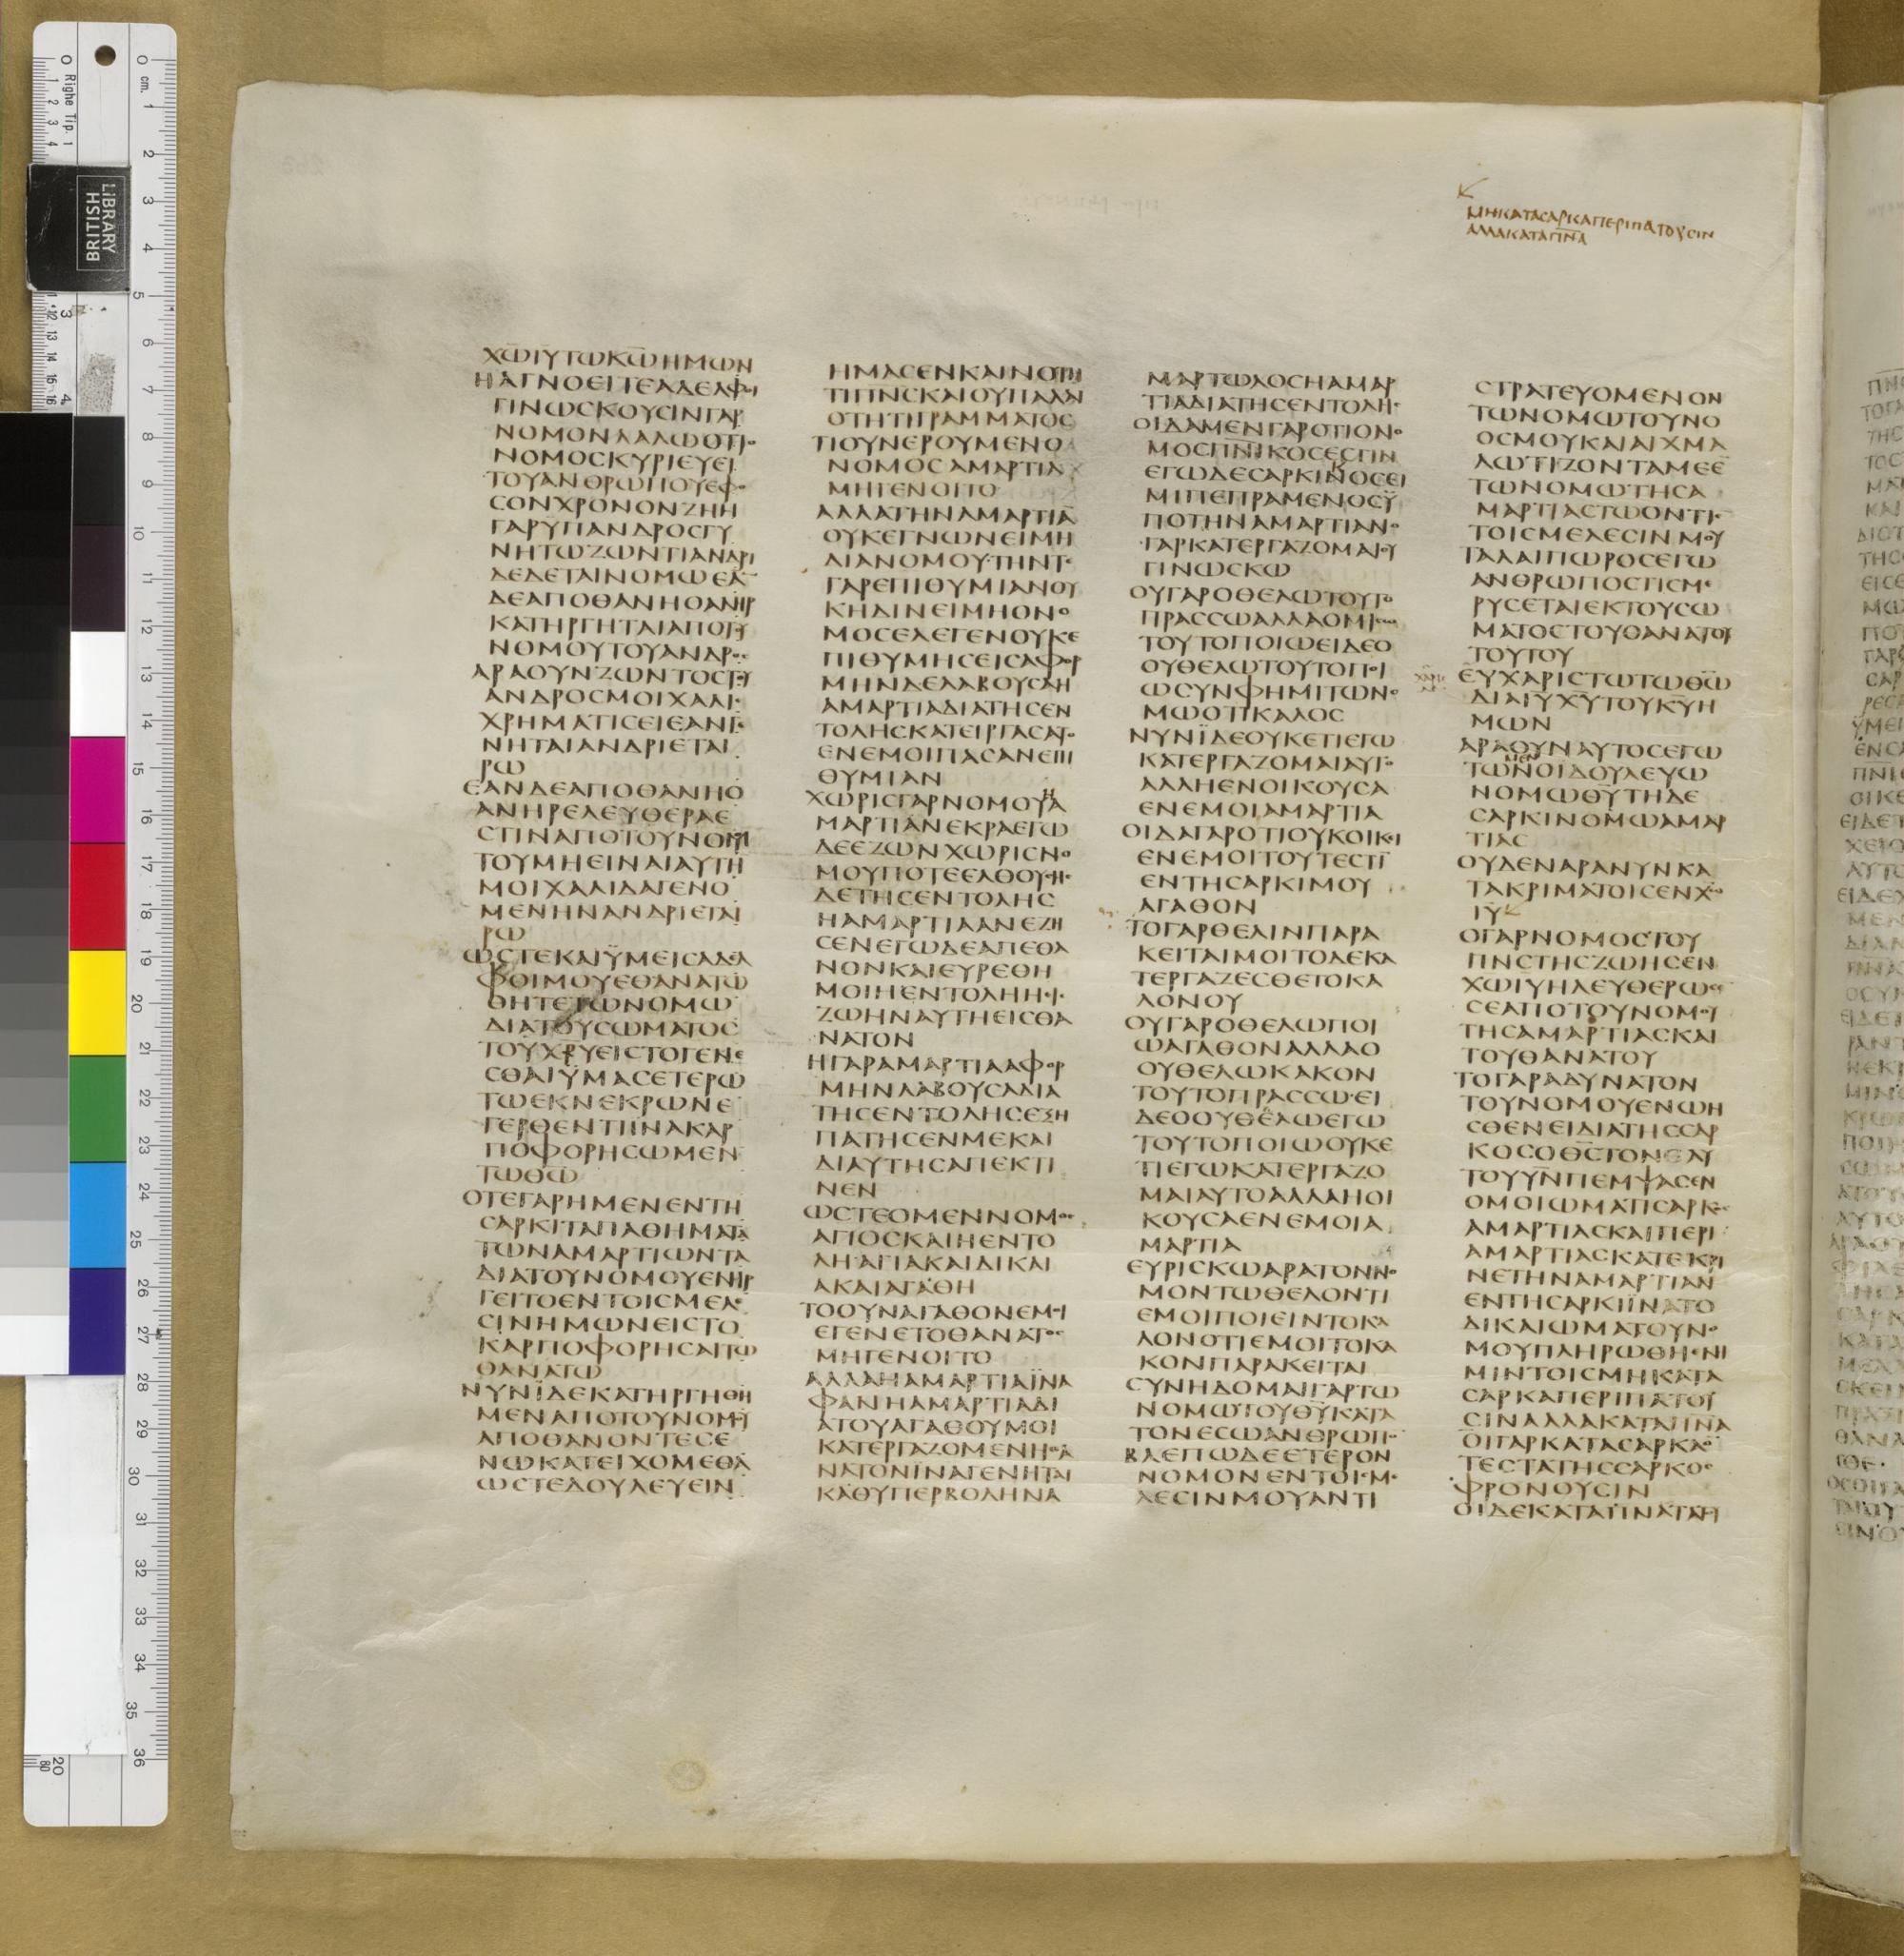 ΜΗΚΑΤΑCΑΡΚΑΠΕΡΙΠΑΤΟΥCΙΝ
ΑΛΛΑΚΑΤΑΠΝΑ
ΧΩΙΥΤΩΚΩΗΜΩΝ
ΗΑΓΝΟΕΙΤΕΑΔΕΛΦΟΙ
ΓΙΝΩCΚΟΥCΙΝΓΑΡ
ΝΟΜΟΝΛΑΛΩΟΤΙΟ
ΝΟΜΟCΚΥΡΙΕΥΕΙ
ΤΟΥΑΝΘΡΩΠΟΥΕΦΟ
CΟΝΧΡΟΝΟΝΖΗΗ
ΓΑΡΥΠΑΝΔΡΟCΓΥ
ΝΗΤΩΖΩΝΤΙΑΝΔΡΙ
ΔΕΔΕΤΑΙΝΟΜΩΕΑ
ΔΕΑΠΟΘΑΝΗΟΑΝΗΡ
ΚΑΤΗΡΓΗΤΑΙΑΠΟΤΟΥ
ΝΟΜΟΥΤΟΥΑΝΔΡΟC
ΑΡΑΟΥΝΖΩΝΤΟCΤΟΥ
ΑΝΔΡΟCΜΟΙΧΑΛΙC
ΧΡΗΜΑΤΙCΕΙΕΑΝΓΕ
ΝΗΤΑΙΑΝΔΡΙΕΤΑΙ
ΡΩ
ΕΑΝΔΕΑΠΟΘΑΝΗΟ
ΑΝΗΡΕΛΕΥΘΕΡΑΕ
CΤΙΝΑΠΟΤΟΥΝΟΜΟΥ
ΤΟΥΜΗΕΙΝΑΙΑΥΤΗ
ΜΟΙΧΑΛΙΔΑΓΕΝΟ
ΜΕΝΗΝΑΝΔΡΙΕΤΑΙ
ΡΩ
ΩCΤΕΚΑΙΫΜΕΙCΑΔΕΛ
ΦΟΙΜΟΥΕΘΑΝΑΤΩ
ΘΗΤΕΤΩΝΟΜΩ
ΔΙΑΤΟΥCΩΜΑΤΟC
ΤΟΥΧΡΥΕΙCΤΟΓΕΝΕ
CΘΑΙΫΜΑCΕΤΕΡΩ
ΤΩΕΚΝΕΚΡΩΝΕ
ΓΕΡΘΕΝΤΙΪΝΑΚΑΡ
ΠΟΦΟΡΗCΩΜΕΝ
ΤΩΘΩ
ΟΤΕΓΑΡΗΜΕΝΕΝΤΗ
CΑΡΚΙΤΑΠΑΘΗΜΑΤΑ
ΤΩΝΑΜΑΡΤΙΩΝΤΑ
ΔΙΑΤΟΥΝΟΜΟΥΕΝΗΡ
ΓΕΙΤΟΕΝΤΟΙCΜΕΛΕ
CΙΝΗΜΩΝΕΙCΤΟ
ΚΑΡΠΟΦΟΡΗCΑΙΤΩ
ΘΑΝΑΤΩ
ΝΥΝΙΔΕΚΑΤΗΡΓΗΘΗ
ΜΕΝΑΠΟΤΟΥΝΟΜΟΥ
ΑΠΟΘΑΝΟΝΤΕCΕ
ΝΩΚΑΤΕΙΧΟΜΕΘΑ
ΩCΤΕΔΟΥΛΕΥΕΙΝ
ΗΜΑCΕΝΚΑΙΝΟΤΗ
ΤΙΠΝCΚΑΙΟΥΠΑΛΑΙ
ΟΤΗΤΙΓΡΑΜΜΑΤΟC
ΤΙΟΥΝΕΡΟΥΜΕΝΟ
ΝΟΜΟCΑΜΑΡΤΙΑ
ΜΗΓΕΝΟΙΤΟ
ΑΛΛΑΤΗΝΑΜΑΡΤΙΑ
ΟΥΚΕΓΝΩΝΕΙΜΗ
ΔΙΑΝΟΜΟΥΤΗΝΤΕ
ΓΑΡΕΠΙΘΥΜΙΑΝΟΥ
ΚΗΔΙΝΕΙΜΗΟΝΟ
ΜΟCΕΛΕΓΕΝΟΥΚΕ
ΠΙΘΥΜΗCΕΙCΑΦΟΡ
ΜΗΝΔΕΛΑΒΟΥCΑΗ
ΑΜΑΡΤΙΑΔΙΑΤΗCΕΝ
ΤΟΛΗCΚΑΤΕΙΡΓΑCΑΤΟ
ΕΝΕΜΟΙΠΑCΑΝΕΠΙ
ΘΥΜΙΑΝ
ΧΩΡΙCΓΑΡΝΟΜΟΥΗΑ
ΜΑΡΤΙΑΝΕΚΡΑΕΓΩ
ΔΕΕΖΩΝΧΩΡΙCΝΟ
ΜΟΥΠΟΤΕΕΛΘΟΥCΗC
ΔΕΤΗCΕΝΤΟΛΗC
ΗΑΜΑΡΤΙΑΑΝΕΖΗ
CΕΝΕΓΩΔΕΑΠΕΘΑ
ΝΟΝΚΑΙΕΥΡΕΘΗ
ΜΟΙΗΕΝΤΟΛΗΗΕΙC
ΖΩΗΝΑΥΤΗΕΙCΘΑ
ΝΑΤΟΝ
ΗΓΑΡΑΜΑΡΤΙΑΑΦΟΡ
ΜΗΝΛΑΒΟΥCΑΔΙΑ
ΤΗCΕΝΤΟΛΗCΕΞΗ
ΠΑΤΗCΕΝΜΕΚΑΙ
ΔΙΑΥΤΗCΑΠΕΚΤΙ
ΝΕΝ
ΩCΤΕΟΜΕΝΝΟΜΟC
ΑΓΙΟCΚΑΙΗΕΝΤΟ
ΛΗΑΓΙΑΚΑΙΔΙΚΑΙ
ΑΚΑΙΑΓΑΘΗ
ΤΟΟΥΝΑΓΑΘΟΝΕΜΟΙ
ΕΓΕΝΕΤΟΘΑΝΑΤΟC
ΜΗΓΕΝΟΙΤΟ
ΑΛΛΑΗΑΜΑΡΤΙΑΪΝΑ
ΦΑΝΗΑΜΑΡΤΙΑΔΙ
ΑΤΟΥΑΓΑΘΟΥΜΟΙ
ΚΑΤΕΡΓΑΖΟΜΕΝΗΘΑ
ΝΑΤΟΝΪΝΑΓΕΝΗΤΑΙ
ΚΑΘΥΠΕΡΒΟΛΗΝΑ
ΜΑΡΤΩΛΟCΗΑΜΑΡ
ΤΙΑΔΙΑΤΗCΕΝΤΟΛΗC
ΟΙΔΑΜΕΝΓΑΡΟΤΙΟΝΟ
ΜΟCΠΝΙΚΟCΕCΤΙΝ
ΕΓΩΔΕCΑΡΚΙΝΟCΕΙ
ΜΙΠΕΠΡΑΜΕΝΟCΫ
ΠΟΤΗΝΑΜΑΡΤΙΑΝΟ
ΓΑΡΚΑΤΕΡΓΑΖΟΜΑΙΟΥ
ΓΙΝΩCΚΩ
ΟΥΓΑΡΟΘΕΛΩΤΟΥΤΟ
ΠΡΑCCΩΑΛΛΑΟΜΙCΩ
ΤΟΥΤΟΠΟΙΩΕΙΔΕΟ
ΟΥΘΕΛΩΤΟΥΤΟΠΟΙ
ΩCΥΝΦΗΜΙΤΩΝΟ
ΜΩΟΤΙΚΑΛΟC
ΝΥΝΪΔΕΟΥΚΕΤΙΕΓΩ
ΚΑΤΕΡΓΑΖΟΜΑΙΑΥΤΟ
ΑΛΛΗΕΝΟΙΚΟΥCΑ
ΕΝΕΜΟΙΑΜΑΡΤΙΑ
ΟΙΔΑΓΑΡΟΤΙΟΥΚΟΙΚΕΙ
ΕΝΕΜΟΙΤΟΥΤΕCΤΙ
ΕΝΤΗCΑΡΚΙΜΟΥ
ΑΓΑΘΟΝ
ΤΟΓΑΡΘΕΛΙΝΠΑΡΑ
ΚΕΙΤΑΙΜΟΙΤΟΔΕΚΑ
ΤΕΡΓΑΖΕCΘΕΤΟΚΑ
ΛΟΝΟΥ
ΟΥΓΑΡΟΘΕΛΩΠΟΙ
ΩΑΓΑΘΟΝΑΛΛΑΟ
ΟΥΘΕΛΩΚΑΚΟΝ
ΤΟΥΤΟΠΡΑCCΩΕΙ
ΔΕΟΟΥΘΕΛΩΕΓΩ
ΤΟΥΤΟΠΟΙΩΟΥΚΕ
ΤΙΕΓΩΚΑΤΕΡΓΑΖΟ
ΜΑΙΑΥΤΟΑΛΛΑΗΟΙ
ΚΟΥCΑΕΝΕΜΟΙΑ
ΜΑΡΤΙΑ
ΕΥΡΙCΚΩΑΡΑΤΟΝΝΟ
ΜΟΝΤΩΘΕΛΟΝΤΙ
ΕΜΟΙΠΟΙΕΙΝΤΟΚΑ
ΛΟΝΟΤΙΕΜΟΙΤΟΚΑ
ΚΟΝΠΑΡΑΚΕΙΤΑΙ
CΥΝΗΔΟΜΑΙΓΑΡΤΩ
ΝΟΜΩΤΟΥΘΥΚΑΤΑ
ΤΟΝΕCΩΑΝΘΡΩΠΟ
ΒΛΕΠΩΔΕΕΤΕΡΟΝ
ΝΟΜΟΝΕΝΤΟΙCΜΕ
ΛΕCΙΝΜΟΥΑΝΤΙ
CΤΡΑΤΕΥΟΜΕΝΟΝ
ΤΩΝΟΜΩΤΟΥΝΟ
ΟCΜΟΥΚΑΙΑΙΧΜΑ
ΛΩΤΙΖΟΝΤΑΜΕΕ
ΤΩΝΟΜΩΤΗCΑ
ΜΑΡΤΙΑCΤΩΟΝΤΙΕ
ΤΟΙCΜΕΛΕCΙΝΜΟΥ
ΤΑΛΑΙΠΩΡΟCΕΓΩ
ΑΝΘΡΩΠΟCΤΙCΜΕ
ΡΥCΕΤΑΙΕΚΤΟΥCΩ
ΜΑΤΟCΤΟΥΘΑΝΑΤΟΥ
ΤΟΥΤΟΥ
ΕΥΧΑΡΙCΤΩΤΩΘΩ
ΔΙΑΙΥΧΥΤΟΥΚΥΗ
ΜΩΝ
ΑΡΑΟΥΝΑΥΤΟCΕΓΩ
ΜΕΝ
ΤΩΝΟΙΔΟΥΛΕΥΩ
ΝΟΜΩΘΥΤΗΔΕ
CΑΡΚΙΝΟΜΩΑΜΑΡ
ΤΙΑC
ΟΥΔΕΝΑΡΑΝΥΝΚΑ
ΤΑΚΡΙΜΑΤΟΙCΕΝΧΩ
ΙΥ
ΟΓΑΡΝΟΜΟCΤΟΥ
ΠΝCΤΗCΖΩΗCΕΝ
ΧΩΙΥΗΛΕΥΘΕΡΩCΕ
CΕΑΠΟΤΟΥΝΟΜΟΥ
ΤΗCΑΜΑΡΤΙΑCΚΑΙ
ΤΟΥΘΑΝΑΤΟΥ
ΤΟΓΑΡΑΔΥΝΑΤΟΝ
ΤΟΥΝΟΜΟΥΕΝΩΗ
CΘΕΝΕΙΔΙΑΤΗCCΑΡ
ΚΟCΟΘCΤΟΝΕΑΥ
ΤΟΥΥΝΠΕΜΨΑCΕΝ
ΟΜΟΙΩΜΑΤΙCΑΡΚΟC
ΑΜΑΡΤΙΑCΚΑΙΠΕΡΙ
ΑΜΑΡΤΙΑCΚΑΤΕΚΡΙ
ΝΕΤΗΝΑΜΑΡΤΙΑΝ
ΕΝΤΗCΑΡΚΙΪΝΑΤΟ
ΔΙΚΑΙΩΜΑΤΟΥΝΟ
ΜΟΥΠΛΗΡΩΘΗΕΝΗ
ΜΙΝΤΟΙCΜΗΚΑΤΑ
CΑΡΚΑΠΕΡΙΠΑΤΟΥ
CΙΝΑΛΛΑΚΑΤΑΠΝΑ
ΟΙΓΑΡΚΑΤΑCΑΡΚΑΟ
ΤΕCΤΑΤΗCCΑΡΚΟC
ΦΡΟΝΟΥCΙΝ
ΟΙΔΕΚΑΤΑΠΝΑΤΑΤΟΥ
LIBRARY
BRITISH